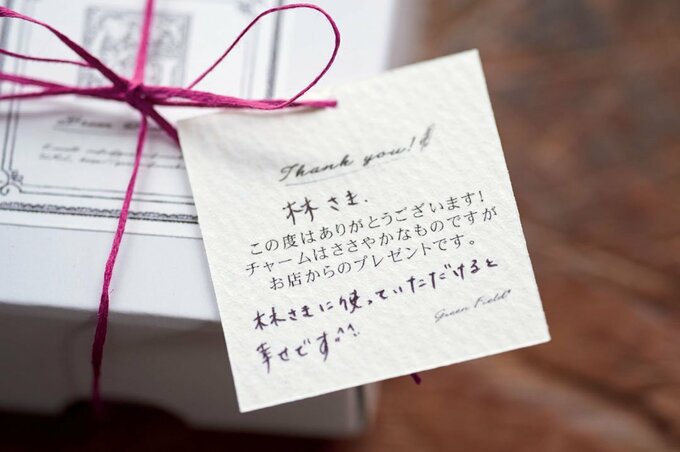 Thank you!
林さま.
この度はありがとうございます!
チャームはささやかなものですが
お店からのプレゼントです。
林さまに使っていただけると
幸せです。^^
Green Field